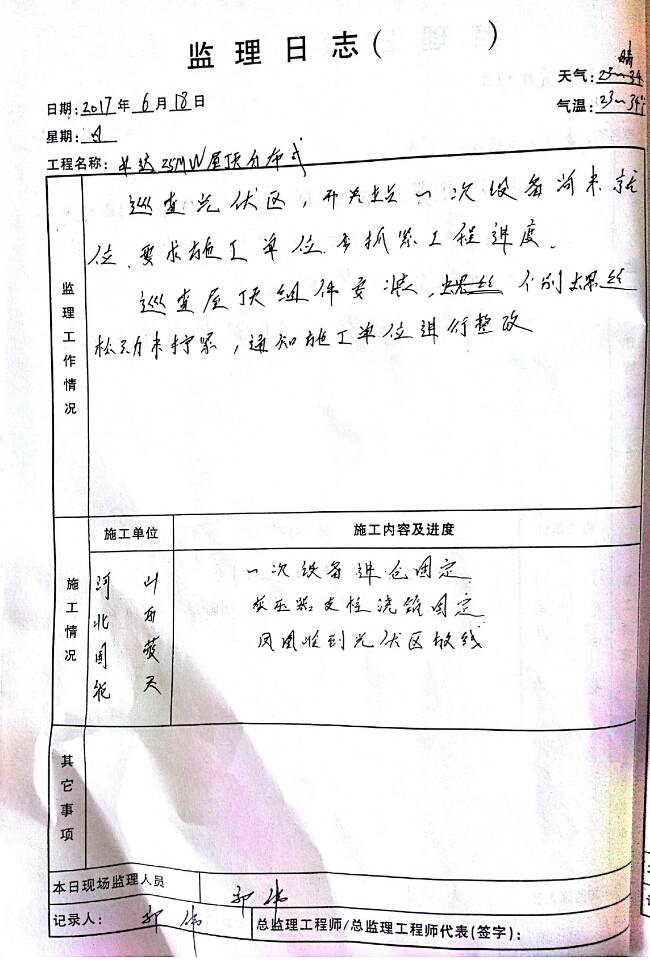 监理日志( )
晴
天气: 23~34
日期: 2017年6月18日
气温: 23~34℃
星期: 日
工程名称: 25MW屋顶分布式
监理工作情况
巡查光伏区,开关站一次设备尚未就
位.要求施工单位 抓紧工程进度.
巡查屋顶组件安装,螺丝 个别螺丝
松动未拧紧,通知施工单位进行整改
施工单位
施工内容及进度
施工情况
河北国能
山西
天
一次设备进仓固定
变压器支柱浇筑固定
到光伏区放线
其它事项
本日现场监理人员
伟
记录人: 伟
总监理工程师/总监理工程师代表(签字):